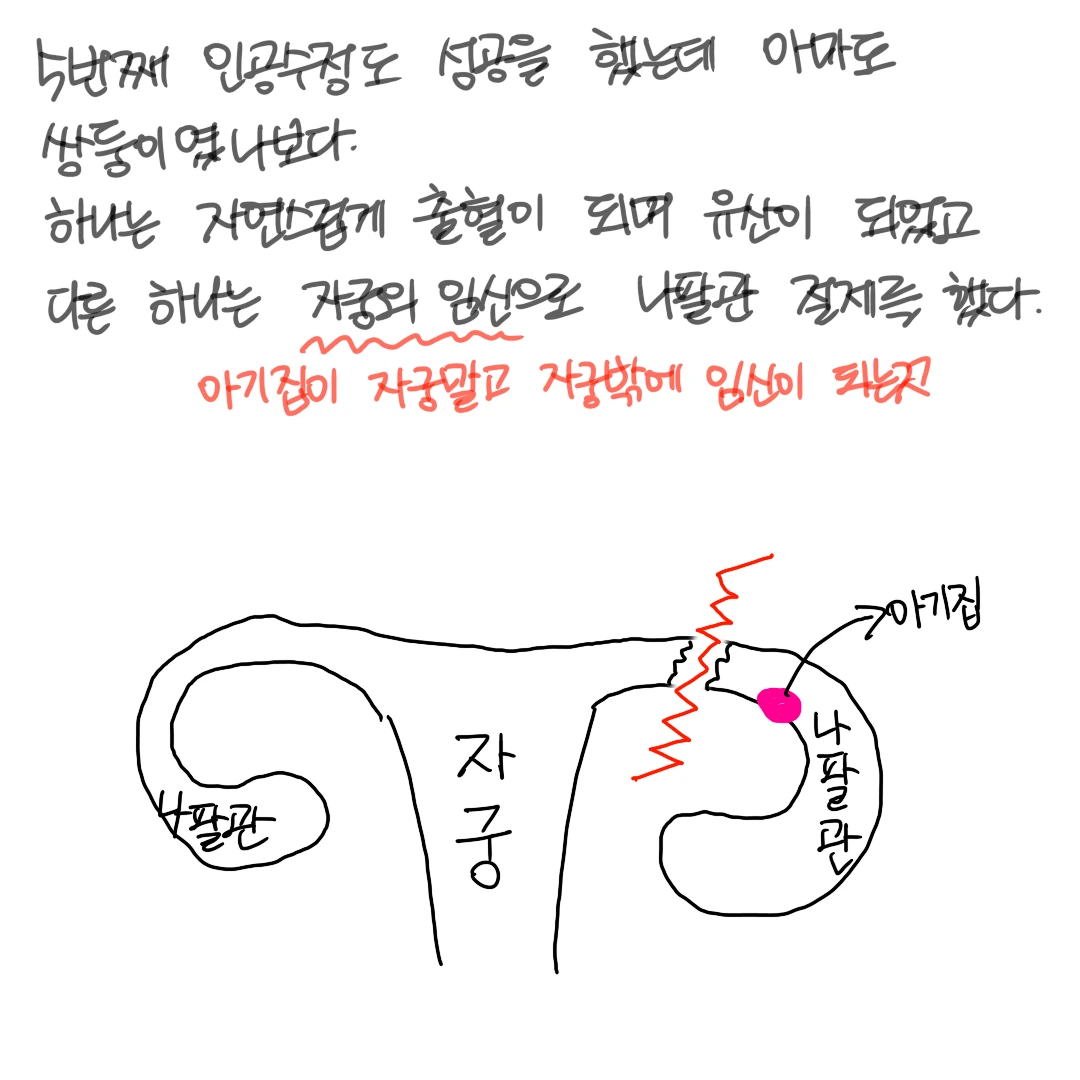 5번째 인공수정도 성공을 했는데 아마도
쌍둥이였나보다.
하나는 자연스럽게 출혈이 되며 유산이 되었고
다른 하나는 자궁외 임신으로 나팔관 절제륵 했다.
아기집이 자궁말고 자궁밖에 임신이 되는것
아기집
자궁
나팔관
나팔관